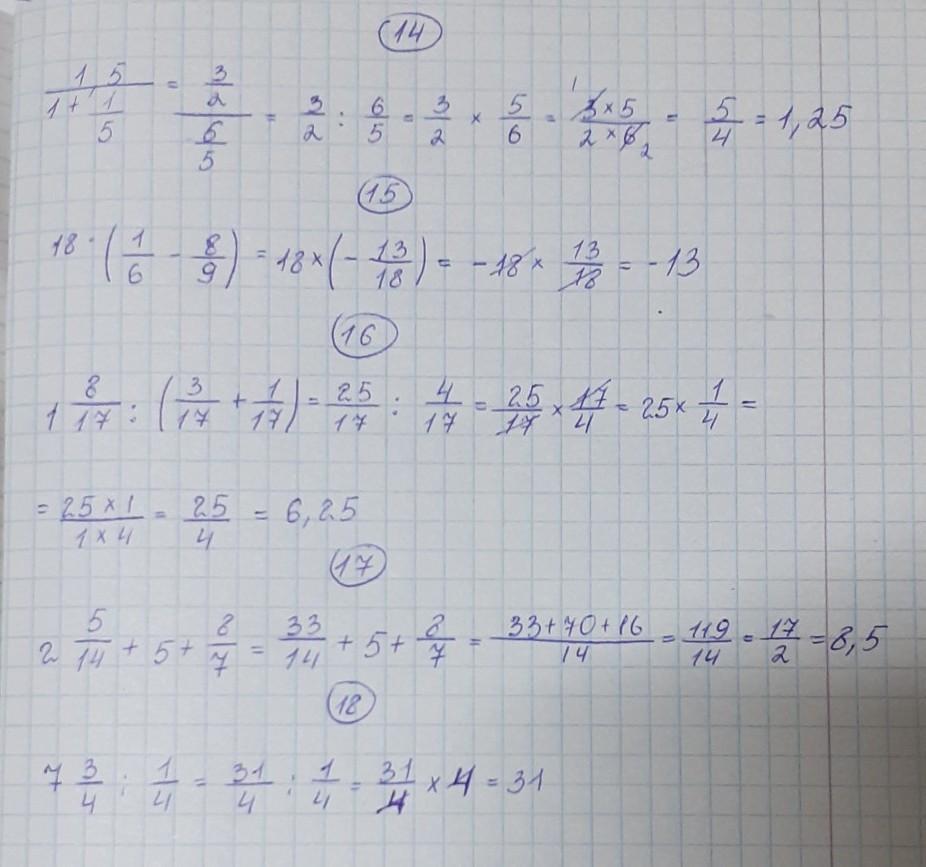 14
1,5/(1+1/5) = (3/2)/(6/5) = 3/2 : 6/5 = 3/2 × 5/6 = ¹3×5/2×6₂ = 5/4 = 1,25
15
18 · (1/6 - 8/9) = 18 × (- 13/18) = -18 × 13/18 = -13
16
1 8/17 : (3/17 + 1/17) = 25/17 : 4/17 = 25/17 × 17/4 = 25 × 1/4 =
= 25×1/1×4 = 25/4 = 6,25
17
2 5/14 + 5 + 8/7 = 33/14 + 5 + 8/7 = 33+70+16/14 = 119/14 = 17/2 = 8,5
18
7 3/4 : 1/4 = 31/4 : 1/4 = 31/4 × 4 = 31